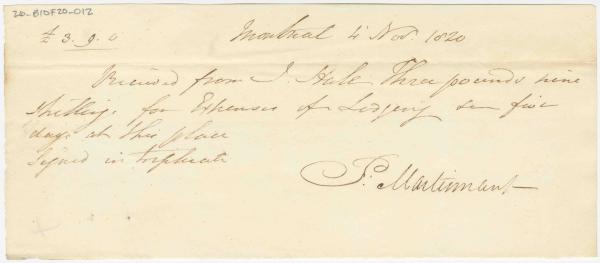 20-B10F20-012
£3.9.0
Montreal 4 Nov. 1820
Received from J. Hale Three pounds nine
shillings for Expenses of Lodging &c five
days at this place
Signed in triplicate
P. Martinnant